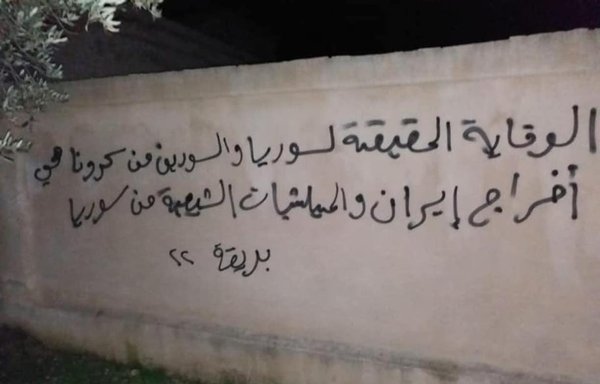 الوقاية الحقيقية لسوريا والسورين من كرونا هي
أخراج إيران والميلشيات الشيعية من سوريا
بريقة ٢٢